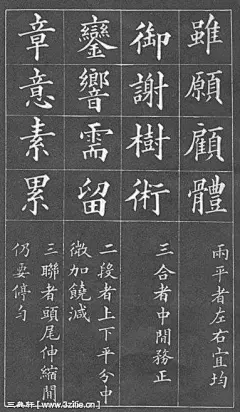 雖願顧體
兩平者左右宜均
御謝樹術
三合者中間務正
鑾響需留
二段者上下平分中
微加饒減
章意素累
三聯者頭尾伸縮間
仍要停勻
三典軒 [www.3zitie.cn]